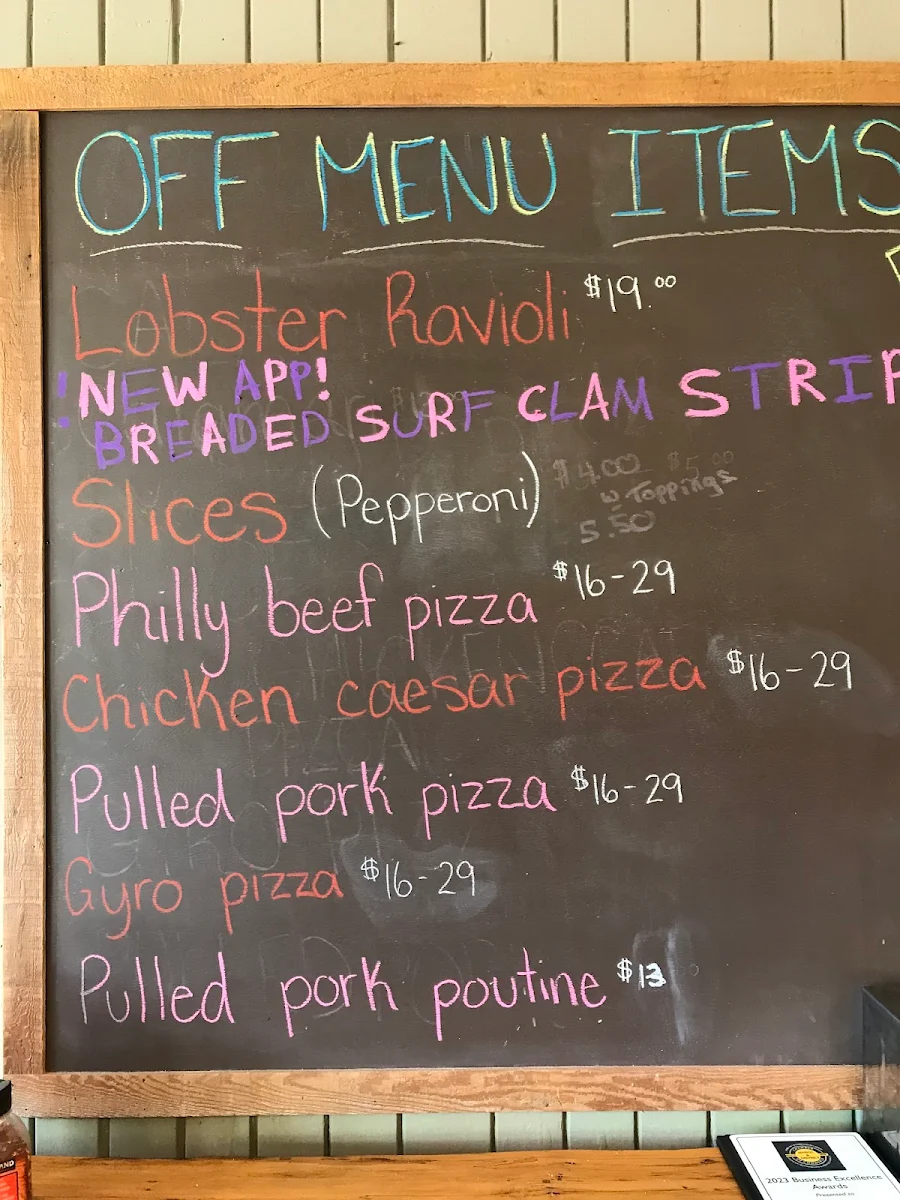 OFF MENU ITEMS
Lobster Ravioli $19.00
!NEW APP!
BREADED SURF CLAM STRIP
Slices (Pepperoni) $4.00 $5.00
w Toppings
5.50
Philly beef pizza $16-29
Chicken caesar pizza $16-29
Pulled pork pizza $16-29
Gyro pizza $16-29
Pulled pork poutine $13
2023 Business Excellence
Awards
Presented to